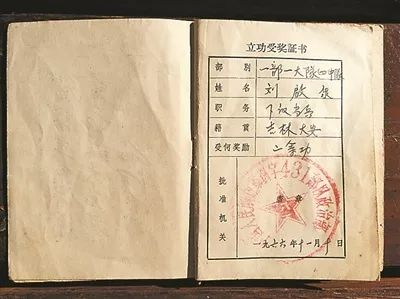 立功受奖证书
部 别 一部一大队四中队
姓 名 刘 啟
职 务
籍 贯 吉林大安
受何奖励 二等功
批准机关
431部队政治部
盖 章
一九七六年十一月十日